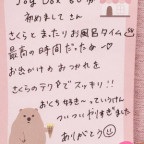 Joy Box 60分
初めまして さん
さくらとまったりお風呂タイム♨
最高の時間だったな♡
お出かけの おつかれを
さくらの テクで スッキリ!!
おくち好き～っていうけん
ついついやりすぎました
ありがとう☺